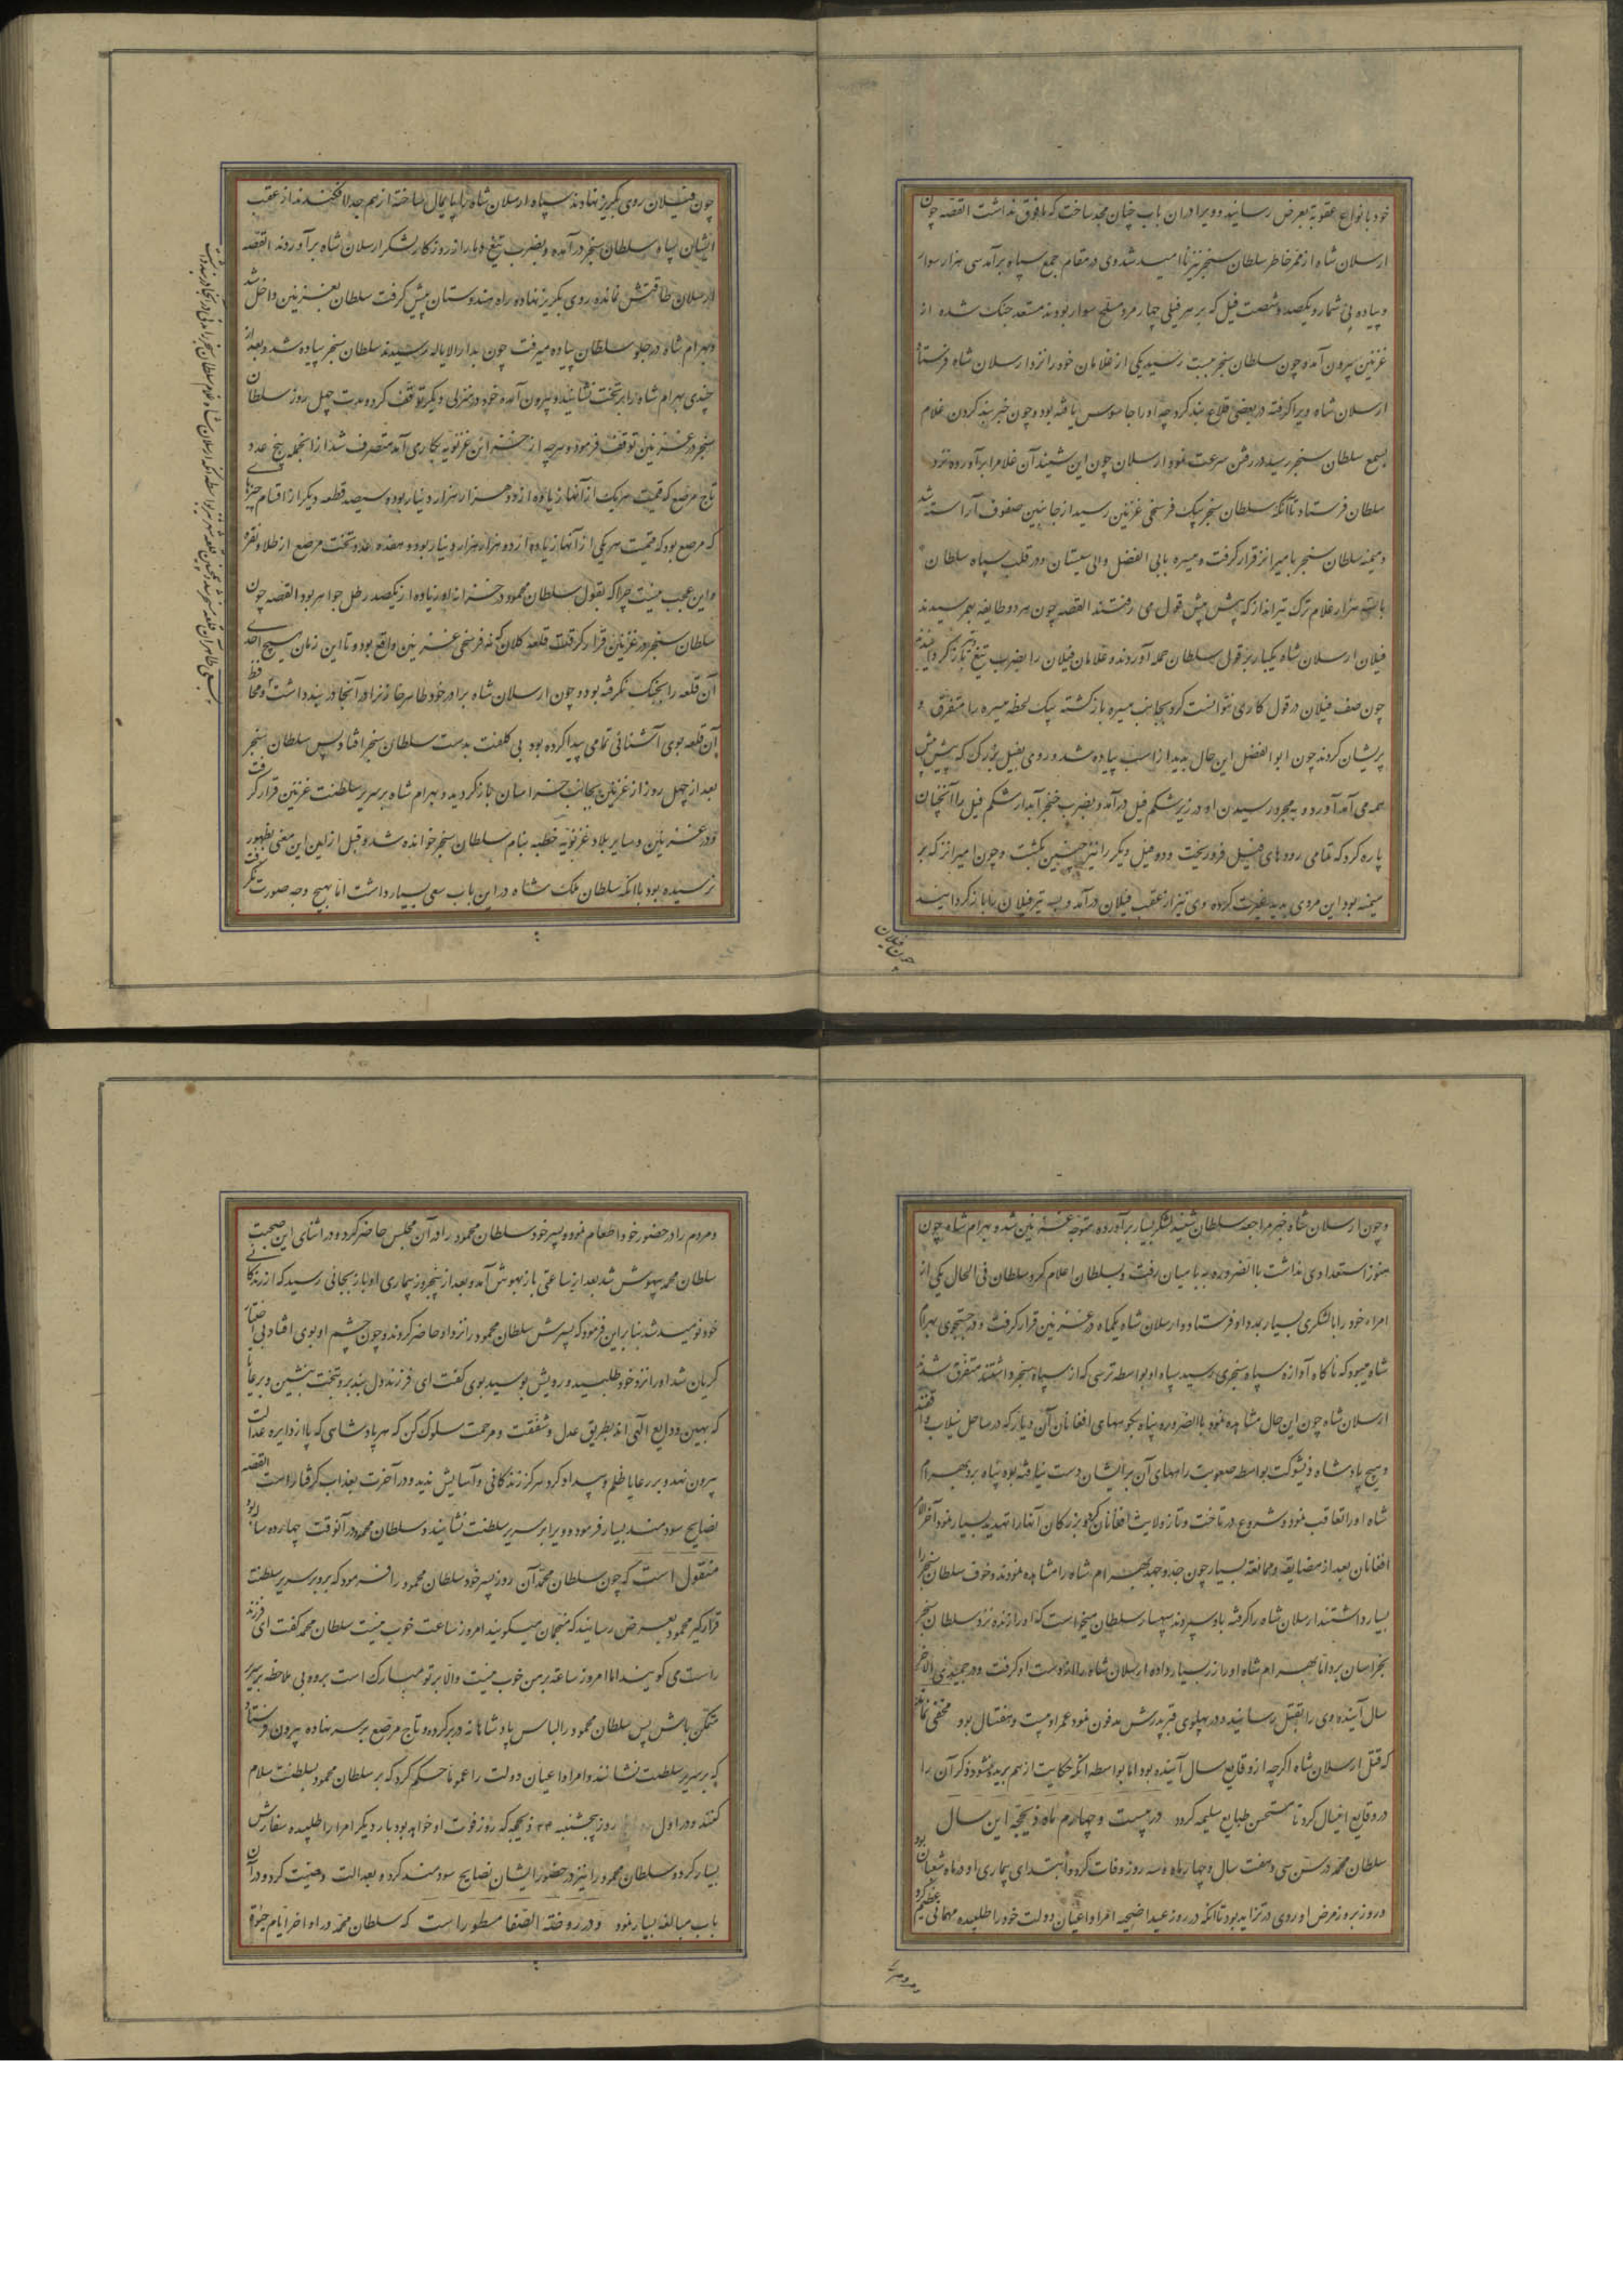 خود بانواع عقوبة بعرض رسانید و ویرا در ان باب چنان مجد ساخت که مافوق نداشت القصه چون
ارسلان شاه از ممر خاطر سلطان سنجر نیز ناامید شد وی در مقام جمع سپاه برآمد سی هزار سوار
و پیاده بی شمار و یکصد و شصت فیل که بر هر فیلی چهار مرد مسلح سوار بودند مستعد جنک شده از
غزنین بیرون آمد و چون سلطان سنجر ببست رسید یکی از غلامان خود را نزد ارسلان شاه فرستاد
ارسلان شاه ویرا کرفته در بعضی قلاع بند کرد چه او را جاسوس یافته بود و چون خبر بند کردن غلام
بسمع سلطان سنجر رسید در رفتن سرعت نمود ارسلان چون این شنید آن غلام را برآورده نزد
سلطان فرستاد تا آنکه سلطان سنجر بیک فرسخی غزنین رسید از جانبین صفوف آراسته شد
و میمنه سلطان سنجر بامیر انز قرار کرفت و میسره بابی الفضل والی سیستان و در قلب سپاه سلطان
با هزار غلام ترک تیرانداز که پیش پیش قول می رفتند القصه چون هر دو طایفه بهم رسیدند
فیلان ارسلان شاه یکبار بر قول سلطان حمله آوردند و غلامان فیلان را بضرب تیغ
چون صف فیلان در قول کاری نتوانست کرد بجانب میسره بازکشته بیک لحظه میسره را متفرق و
پریشان کردند چون ابوالفضل این حال بدید از اسب پیاده شد و روی بفیل بزرک که پیش پیش
همه می آمد آورده بمجرد رسیدن او در زیر شکم فیل درآمد و بضرب خنجر آبدار شکم فیل را آنچنان
پاره کرد که تمامی رودهای فیل فرو ریخت و دو فیل دیکر را نیز چنین بکشت و چون امیر انز که بر
میمنه بود این مردی بدید غیرت کرده وی نیز از عقب فیلان درآمد و به تیر فیلان را باز کردانید
چون فیلان
چون فیلان روی بکریز نهادند سپاه ارسلان شاه را پایمال ساخته از هم جدا افکندند از عقب
ایشان سپاه سلطان سنجر درآمده و بضرب تیغ دمار از روزکار لشکر ارسلان شاه برآوردند القصه
ارسلان طاقتش نمانده روی بکریز نهاده راه هندوستان پیش کرفت سلطان بغزنین داخل شد
و بهرام شاه در جلو سلطان پیاده میرفت چون بدار الایاله رسیدند سلطان سنجر پیاده شد و بعد از
چندی بهرام شاه را بر تخت نشانید و بیرون آمده خود در منزلی دیکر توقف کرد و مدت چهل روز سلطان
سنجر در غزنین توقف فرمود و هرچه از خزائن غزنویه بکاری آمد متصرف شد از انجمله پنج عدد
تاج مرصع که قیمت هر یک از آنها زیاده از دو هزار هزار دینار بود و سیصد قطعه دیکر از اقسام چیزهای
که مرصع بود که قیمت هر یکی از آنها زیاده از دو هزار هزار دینار بود و هفده عدد تخت مرصع از طلا و نقره
و این عجب نیست چرا که بقول سلطان محمود در خزانه او زیاده از یکصد رطل جواهر بود القصه چون
سلطان سنجر در غزنین قرار کرفت قلعه کلان که نه فرسخی غزنین واقع بود و تا این زمان هیچ احدی
آن قلعه را بجنک نکرفته بود و چون ارسلان شاه برادر خود طاهر را در آنجا در بند داشت و محافظ
آن قلعه بوی آشنائی تمامی پیدا کرده بود بی کلفت بدست سلطان سنجر افتاد پس سلطان سنجر
بعد از چهل روز از غزنین بجانب خراسان باز کردید و بهرام شاه بر سریر سلطنت غزنین قرار کرفت
و در غزنین و سایر بلاد غزنویه خطبه بنام سلطان سنجر خوانده شد و قبل ازین این معنی بظهور
نرسیده بود با آنکه سلطان ملک شاه در این باب سعی بسیار داشت اما بهیچ وجه صورت نکرفت
و چون ارسلان شاه خبر مراجعه سلطان شنید لشکر بسیار برآورده متوجه غزنین شد و بهرام شاه چون
هنوز استعدادی نداشت بالضروره ببامیان رفت و بسلطان اعلام کرد سلطان فی الحال یکی از
امراء خود را با لشکری بسیار بمدد او فرستاد و ارسلان شاه یکماه در غزنین قرار کرفت و در جستجوی بهرام
شاه میبود که ناکاه آوازه سپاه سنجری رسید سپاه او بواسطه ترسی که از سپاه سنجر داشتند متفرق شدند
ارسلان شاه چون این حال مشاهده نمود بالضروره پناه بکوههای افغانان آن دیار که در ساحل نیلاب واقعند
و هیچ پادشاه ذیشوکت بواسطه صعوبت راههای آن بر ایشان دست نیافته بود پناه برد بهرام
شاه او را تعاقب نمود و شروع در تاخت و تاز ولایت افغانان کرد و بزرکان آنها را تهدید بسیار نمود آخر الامر
افغانان بعد از مضایقه و ممانعه بسیار چون جد و جهد بهرام شاه را مشاهده نمودند و خوف سلطان سنجر را
بسیار داشتند ارسلان شاه را کرفته باو سپردند سپهسار سلطان میخواست که او را زنده نزد سلطان سنجر
بخراسان برد اما بهرام شاه او را زر بسیار داده ارسلان شاه را از دست او کرفت و در جمیدی الاخر
سال آینده وی را بقتل رسانید و در پهلوی قبر پدرش مدفون نمود عمر او بیست و هفتسال بود مخفی نماند
که قتل ارسلان شاه اکرچه از وقایع سال آینده بود اما بواسطه آنکه حکایت از هم بریده نشود ذکر آن را
در وقایع امسال کرد تا مستحسن طبایع سلیمه کردد در بیست و چهارم ماه ذیحجه این سال
سلطان محمد در سن سی و هفت سال و چهار ماه و سه روز وفات کرد و ابتدای بیماری او در ماه شعبان بود
و روز بروز مرض او روی در تزاید بود تا آنکه در روز عید اضحیه امرا و اعیان دولت خود را طلبیده مهمانی عظیم کرد
و مردم را
و مردم را در حضور خود اطعام نمود و پسر خود سلطان محمود را در آن مجلس حاضر کرد و در اثنای این صحبت
سلطان محمد بیهوش شد بعد از ساعتی باز بهوش آمد و بعد از پنجروز بیماری او بازبجائی رسید که از زندکانی
خود نومید شد بنابر این فرمود که پسرش سلطان محمود را نزد او حاضر کردند و چون چشم او بوی افتاد بی اختیار
کریان شد او را نزد خود طلبید و رویش بوسید بوی کفت ای فرزند دل بند برو تخت بنشین و برعایا
که بهین ودایع الهی اند بطریق عدل و شفقت و مرحمت سلوک کن که هر پادشاهی که پا از دایره عدالت
بیرون نهد و بر رعایا ظلم و بیداد کرد هرکز زندکانی و آسایش ندید و در آخرت بعذاب کرفتار است القصه
نصایح سودمند بسیار فرمود و ویرا بر سریر سلطنت نشانید و سلطان محمود در آنوقت چهارده ساله بود
منقول است که چون سلطان محمد آن روز پسر خود سلطان محمود را فرمود که برو بر سریر سلطنت
قرار کیر محمود بعرض رسانید که منجمان میکویند امروز ساعت خوب نیست سلطان محمد کفت ای فرزند
راست می کویند اما امروز ساعة بر من خوب نیست والا بر تو مبارک است برو و بی ملاحظه بر سریر
متمکن باش پس سلطان محمود را لباس پادشاهانه در بر کرده و تاج مرصع بر سر نهاده بیرون فرستاد
که بر سریر سلطنت نشانند و امرا و اعیان دولت را عموما حکم کرد که بر سلطان محمود بسلطنت سلام
کنند و در اول روز پنجشنبه ۲۴ ذیحجه که روز فوت او خواهد بود بار دیکر امرا را طلبیده سفارش
بسیار کرده و سلطان محمود را نیز در حضور ایشان نصایح سودمند کرده و بعدالت وصیت کرد و در آن
باب مبالغه بسیار نمود و در روضة الصفا مسطور است که سلطان محمد در اواخر ایام حیوة